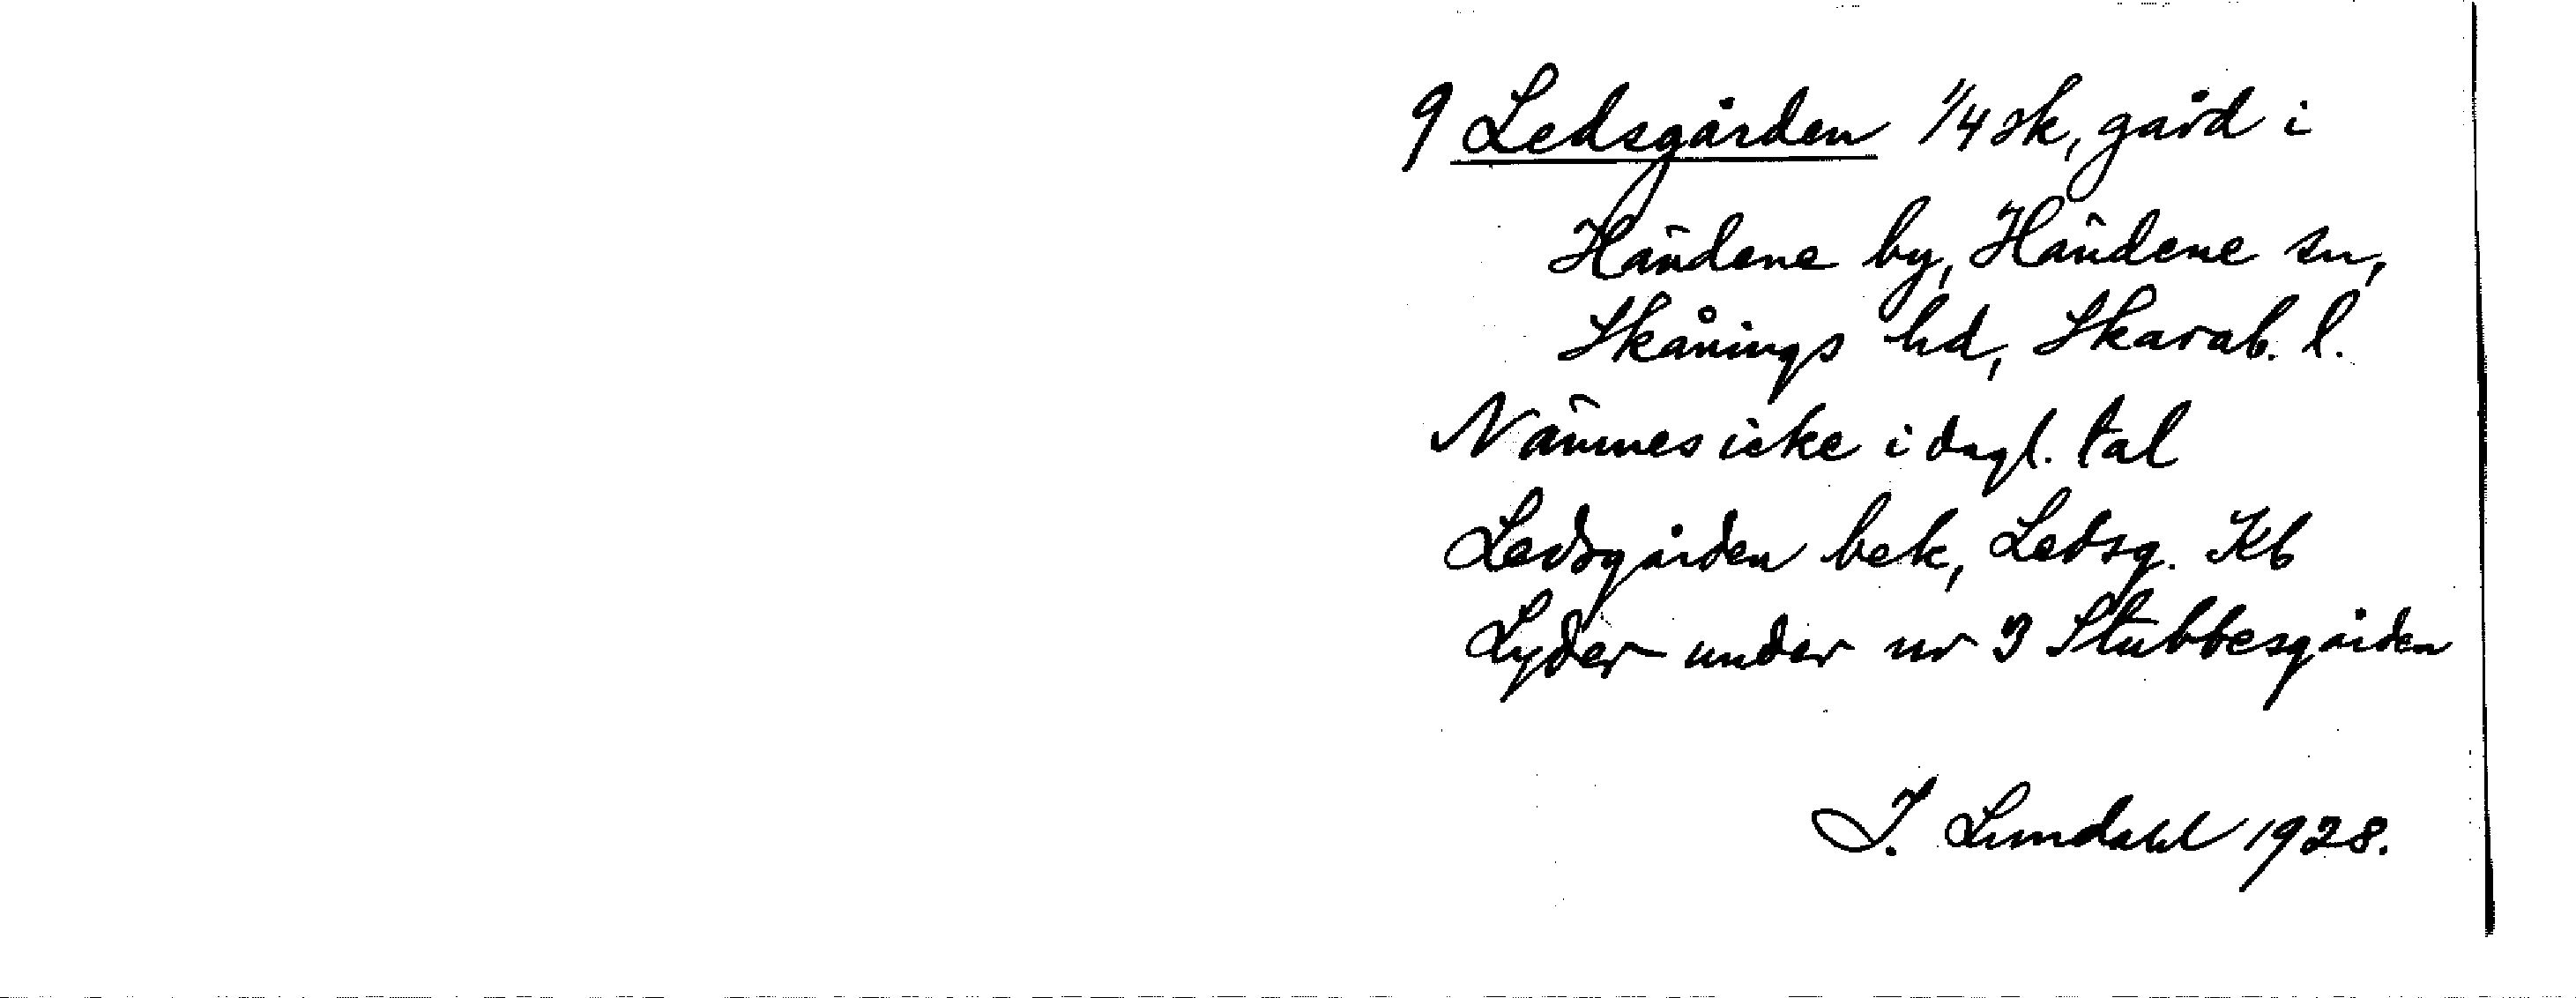 9 Ledsgården 1/4 sk, gård i
Händene by, Händene sn,
Skånings hd, Skarab. l.
Nämnes icke i dagl. tal
Ledsgården bek, Ledsg. Kb
Lyder under nr 3 Stubbesgården
I. Lundahl 1928.